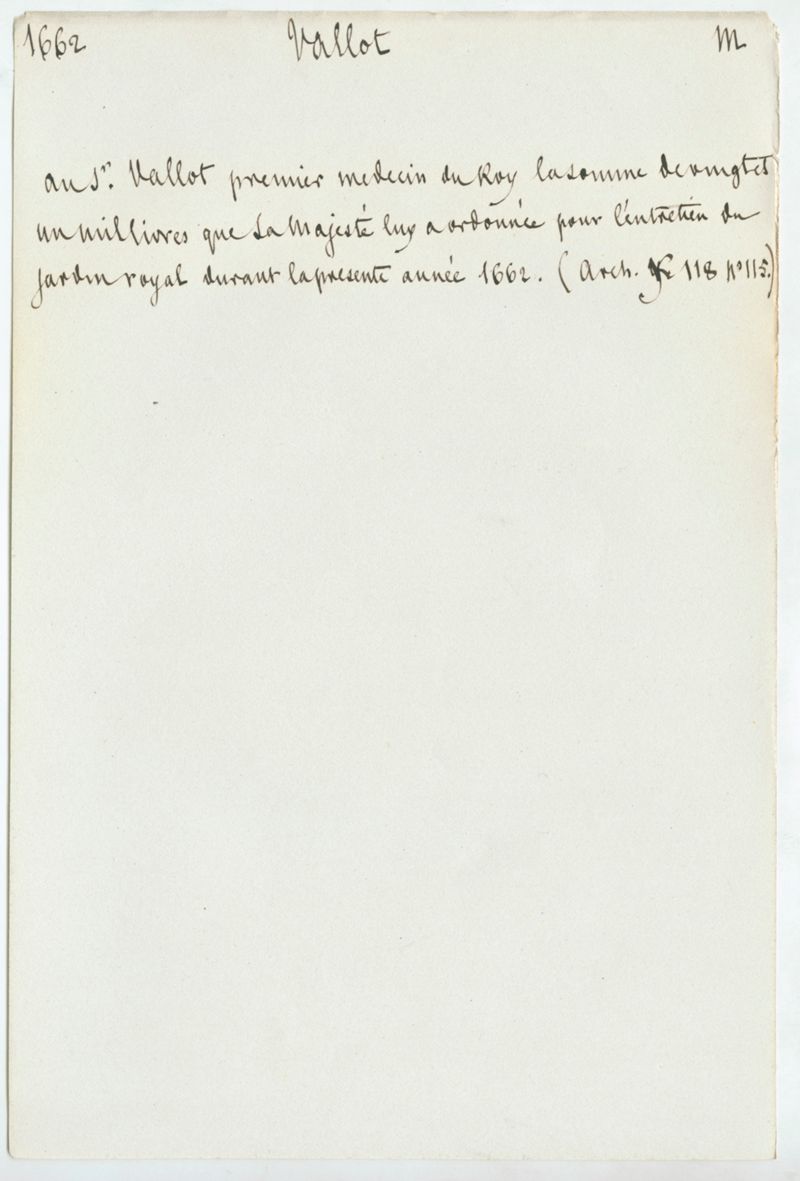 1662 Vallot M
au Sr. Vallot premier medecin du Roy la somme de vingt et
un mil livres que Sa Majesté luy a ordonnée pour l'entretien du
jardin royal durant la presente année 1662. (Arch. K 118 no 115.)